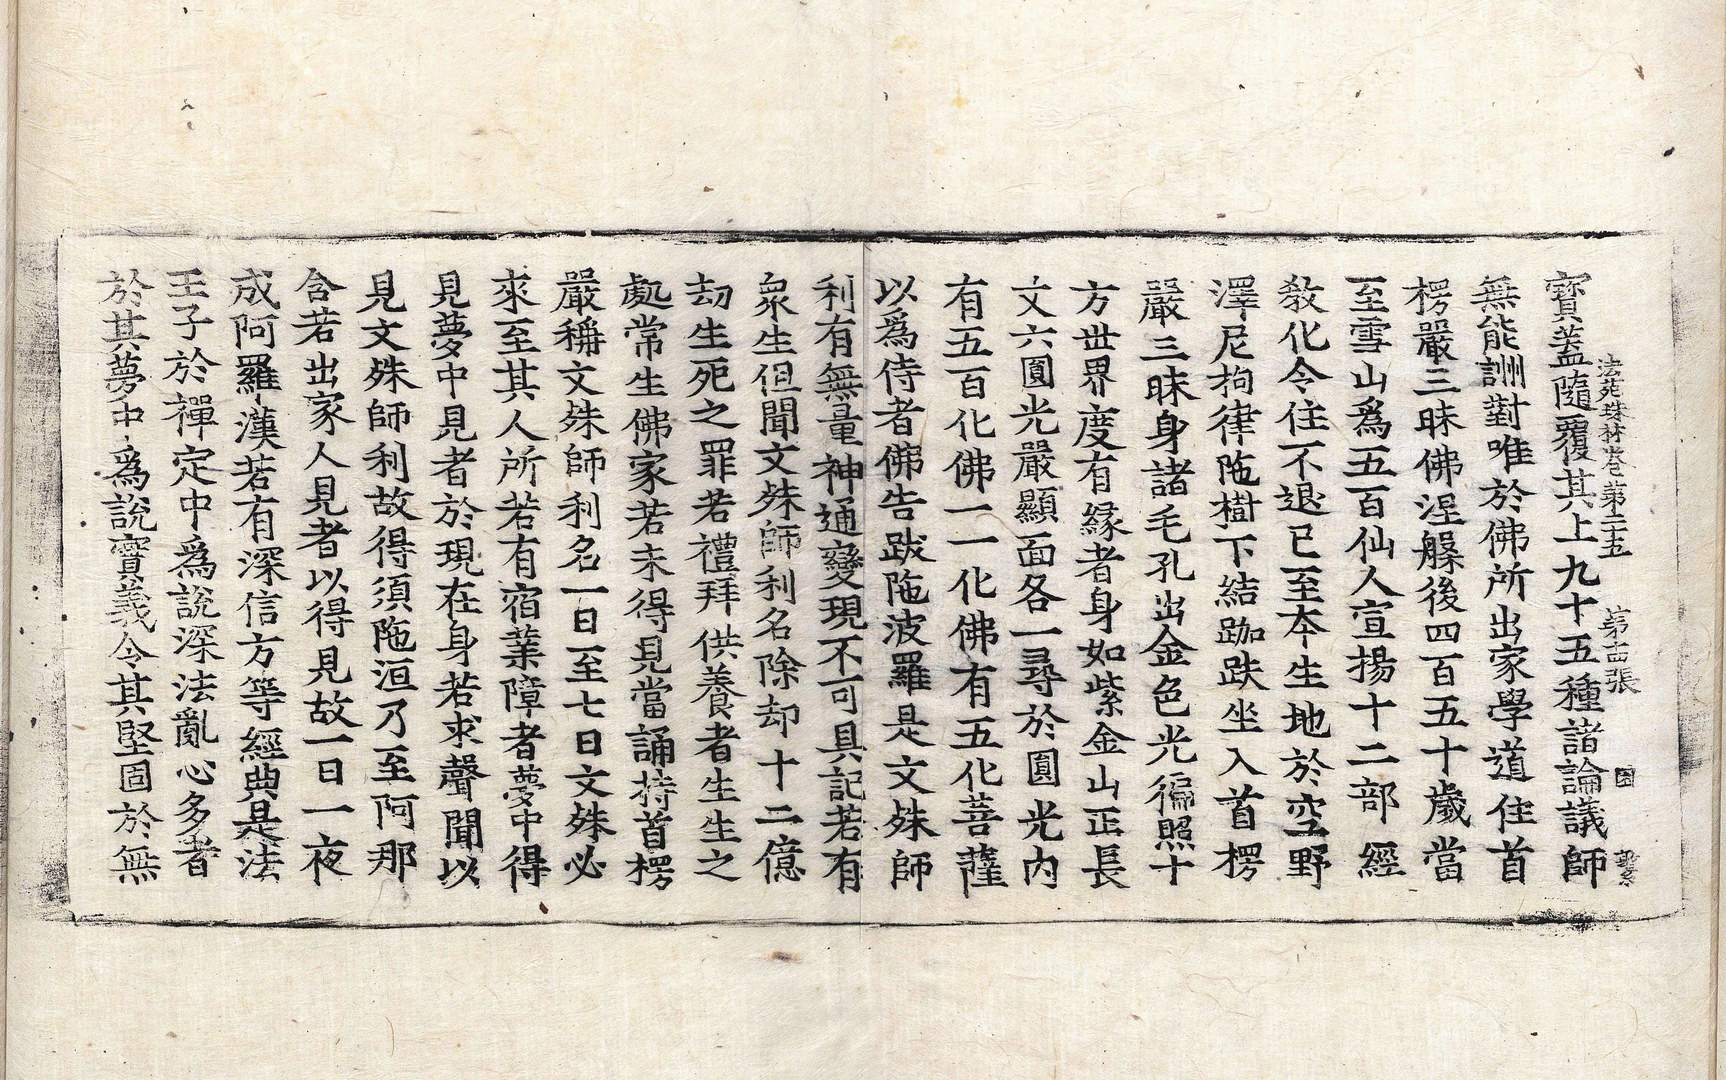 法苑珠林卷第 第 張
寶蓋隨覆其上九十五種諸論議師
無能詶對唯於佛所出家學道住首
楞嚴三昧佛涅槃後四百五十歲當
至雪山爲五百仙人宣揚十二部經
敎化令住不退已至夲生地於空野
澤尼拘律陁樹下結跏趺坐入首楞
嚴三昧身諸毛孔出金色光徧照十
方世界度有緣者身如紫金山正長
丈六圓光嚴顯面各一尋於圓光内
有五百化佛一一化佛有五化菩薩
以爲侍者佛告跋陁波羅是文殊師
利有無量神通變現不可具記若有
衆生但聞文殊師利名除却十二億
劫生死之罪若禮拜供養者生生之
處常生佛家若未得見當誦持首楞
嚴稱文殊師利名一日至七日文殊必
來至其人所若有宿業障者夢中得
見夢中見者於現在身若求聲聞以
見文殊師利故得須陁洹乃至阿那
含若出家人見者以得見故一日一夜
成阿羅漢若有深信方等經典是法
王子於禪定中爲說深法亂心多者
於其夢中爲說實義令其堅固於無